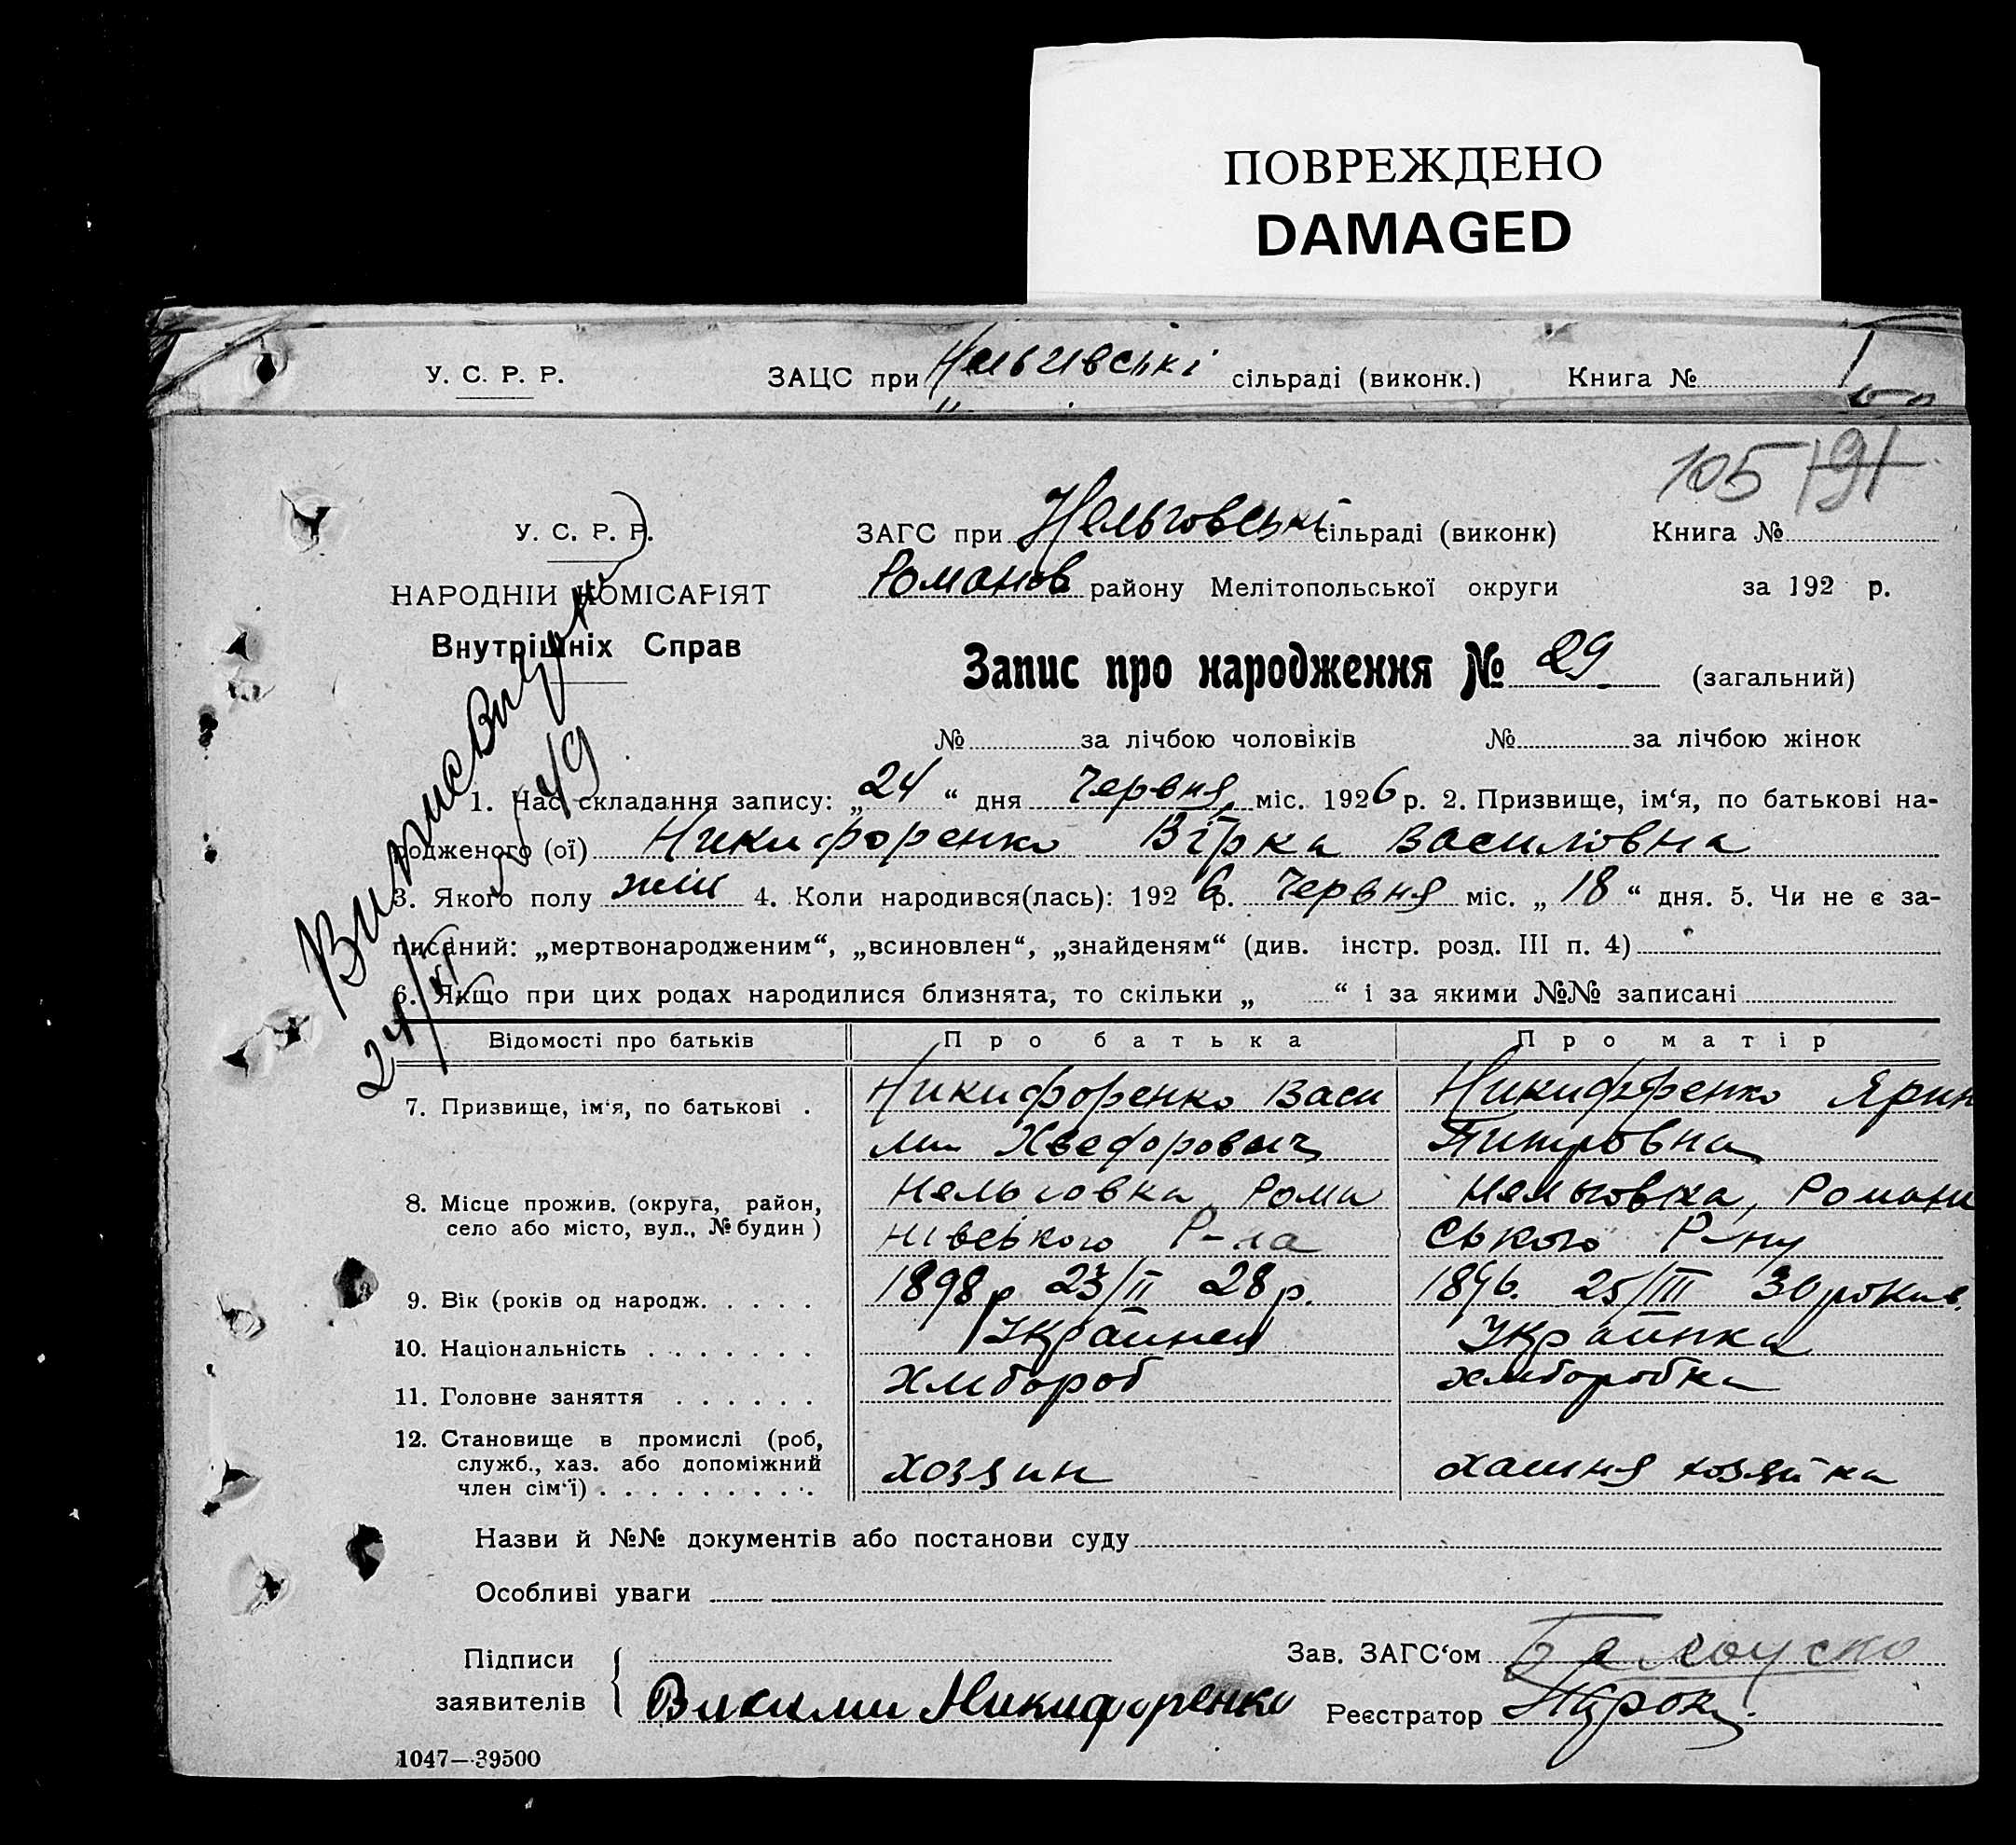 ПОВРЕЖДЕНО
DAMAGED
У. С. Р. Р. ЗАЦС при сільраді (виконк.) Книга №
105 191
У. С. Р. Р. ЗАГС при Нельговські сільраді (виконк) Книга №
НАРОДНІЙ КОМІСАРІЯТ Романов району Мелітопольської округи за 192 р.
Внутрішніх Справ
Запис про народження № 29 (загальний)
№ за лічбою чоловіків № за лічбою жінок
1. Час складання запису: „24“ дня Червня міс. 1926 р. 2. Призвище, ім‘я, по батькові на-
родженого (ої) Никифоренко Вірка Василовна
3. Якого полу жін 4. Коли народився(лась): 1926 р. Червня міс. „18“ дня. 5. Чи не є за-
писаний: „мертвонародженим“, „всиновлен“, „знайденям“ (див. інстр. розд. III п. 4)
6. Якщо при цих родах народилися близнята, то скільки „ “ і за якими №№ записані
Відомості про батьків Про батька Про матір
7. Призвище, ім‘я, по батькові . Никифоренко Васи Никифоренко Ярин
ли Хведорович Питровна
8. Місце прожив. (округа, район, Нельговка, Рома Нельговка, Романи
село або місто, вул., № будин) нівського Р-на ського Р-ну
9. Вік (років од народж. . . . . 1898р 23/II 28р. 1896. 25/III 30 рокив.
10. Національність . . . . . . . Украинец Украинка
11. Головне заняття . . . . . . Хлибороб хлиборобка
12. Становище в промислі (роб,
служб., хаз. або допоміжний
член сім‘ї) . . . . . . . . . . хозяин хозяйка
Назви й №№ документів або постанови суду
Особливі уваги
Підписи Зав. ЗАГС‘ом
заявителів Никифоренко Реєстратор
1047—39500